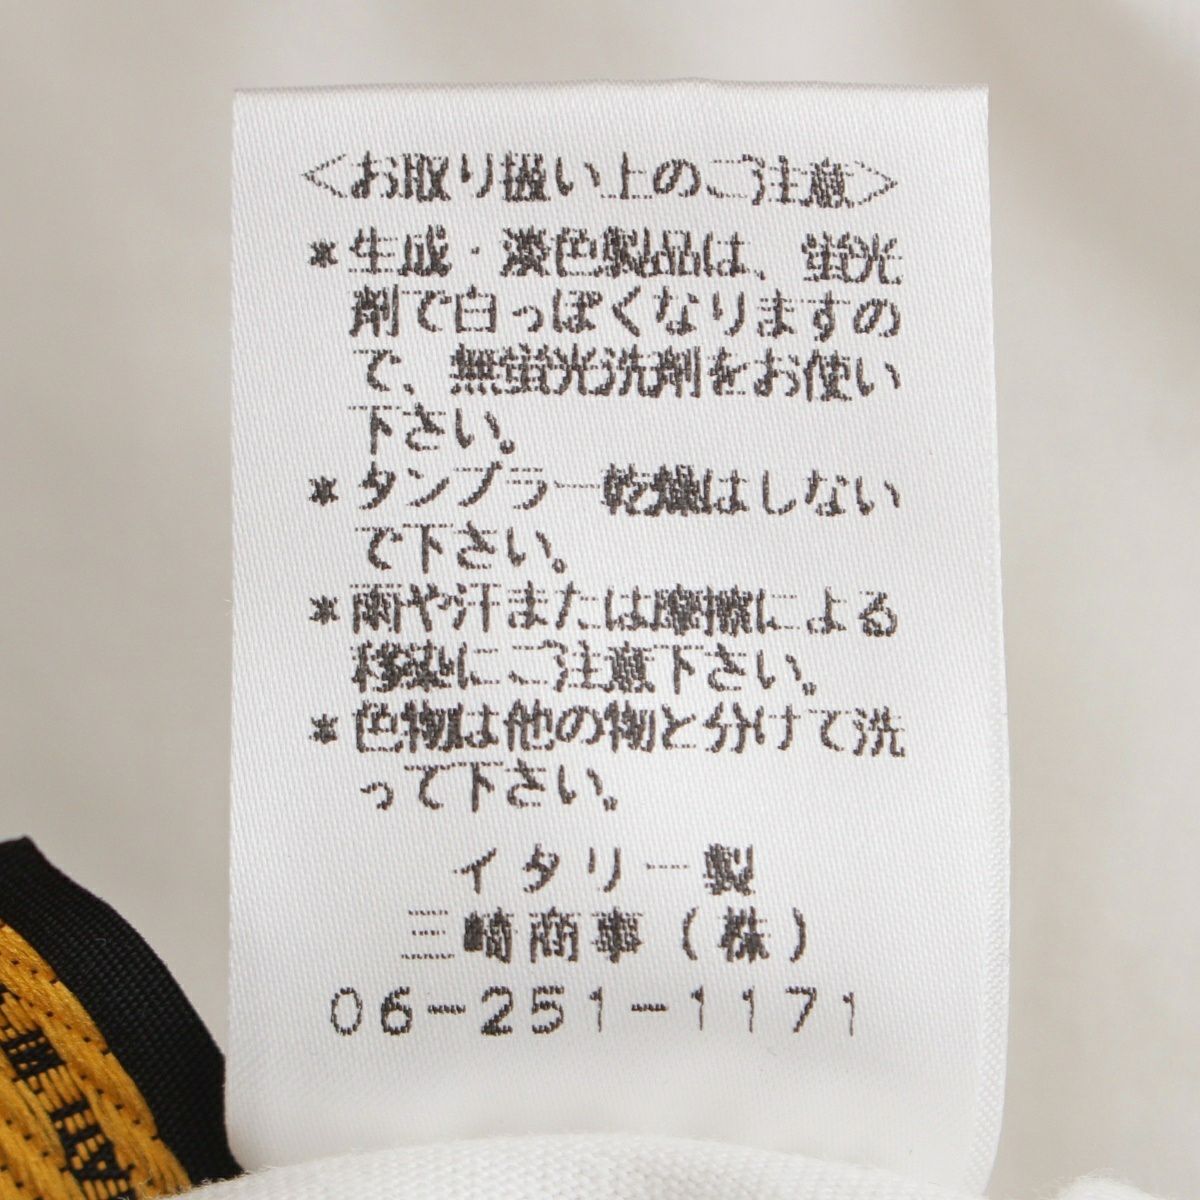 <お取り扱い上のご注意>
*生成・淡色製品は、蛍光
剤で白っぽくなりますの
で、無蛍光洗剤をお使い
下さい。
*タンブラー乾燥はしない
で下さい。
*雨や汗または摩擦による
移染にご注意下さい。
*色物は他の物と分けて洗
って下さい。
イタリー製
三崎商事(株)
06-251-1171